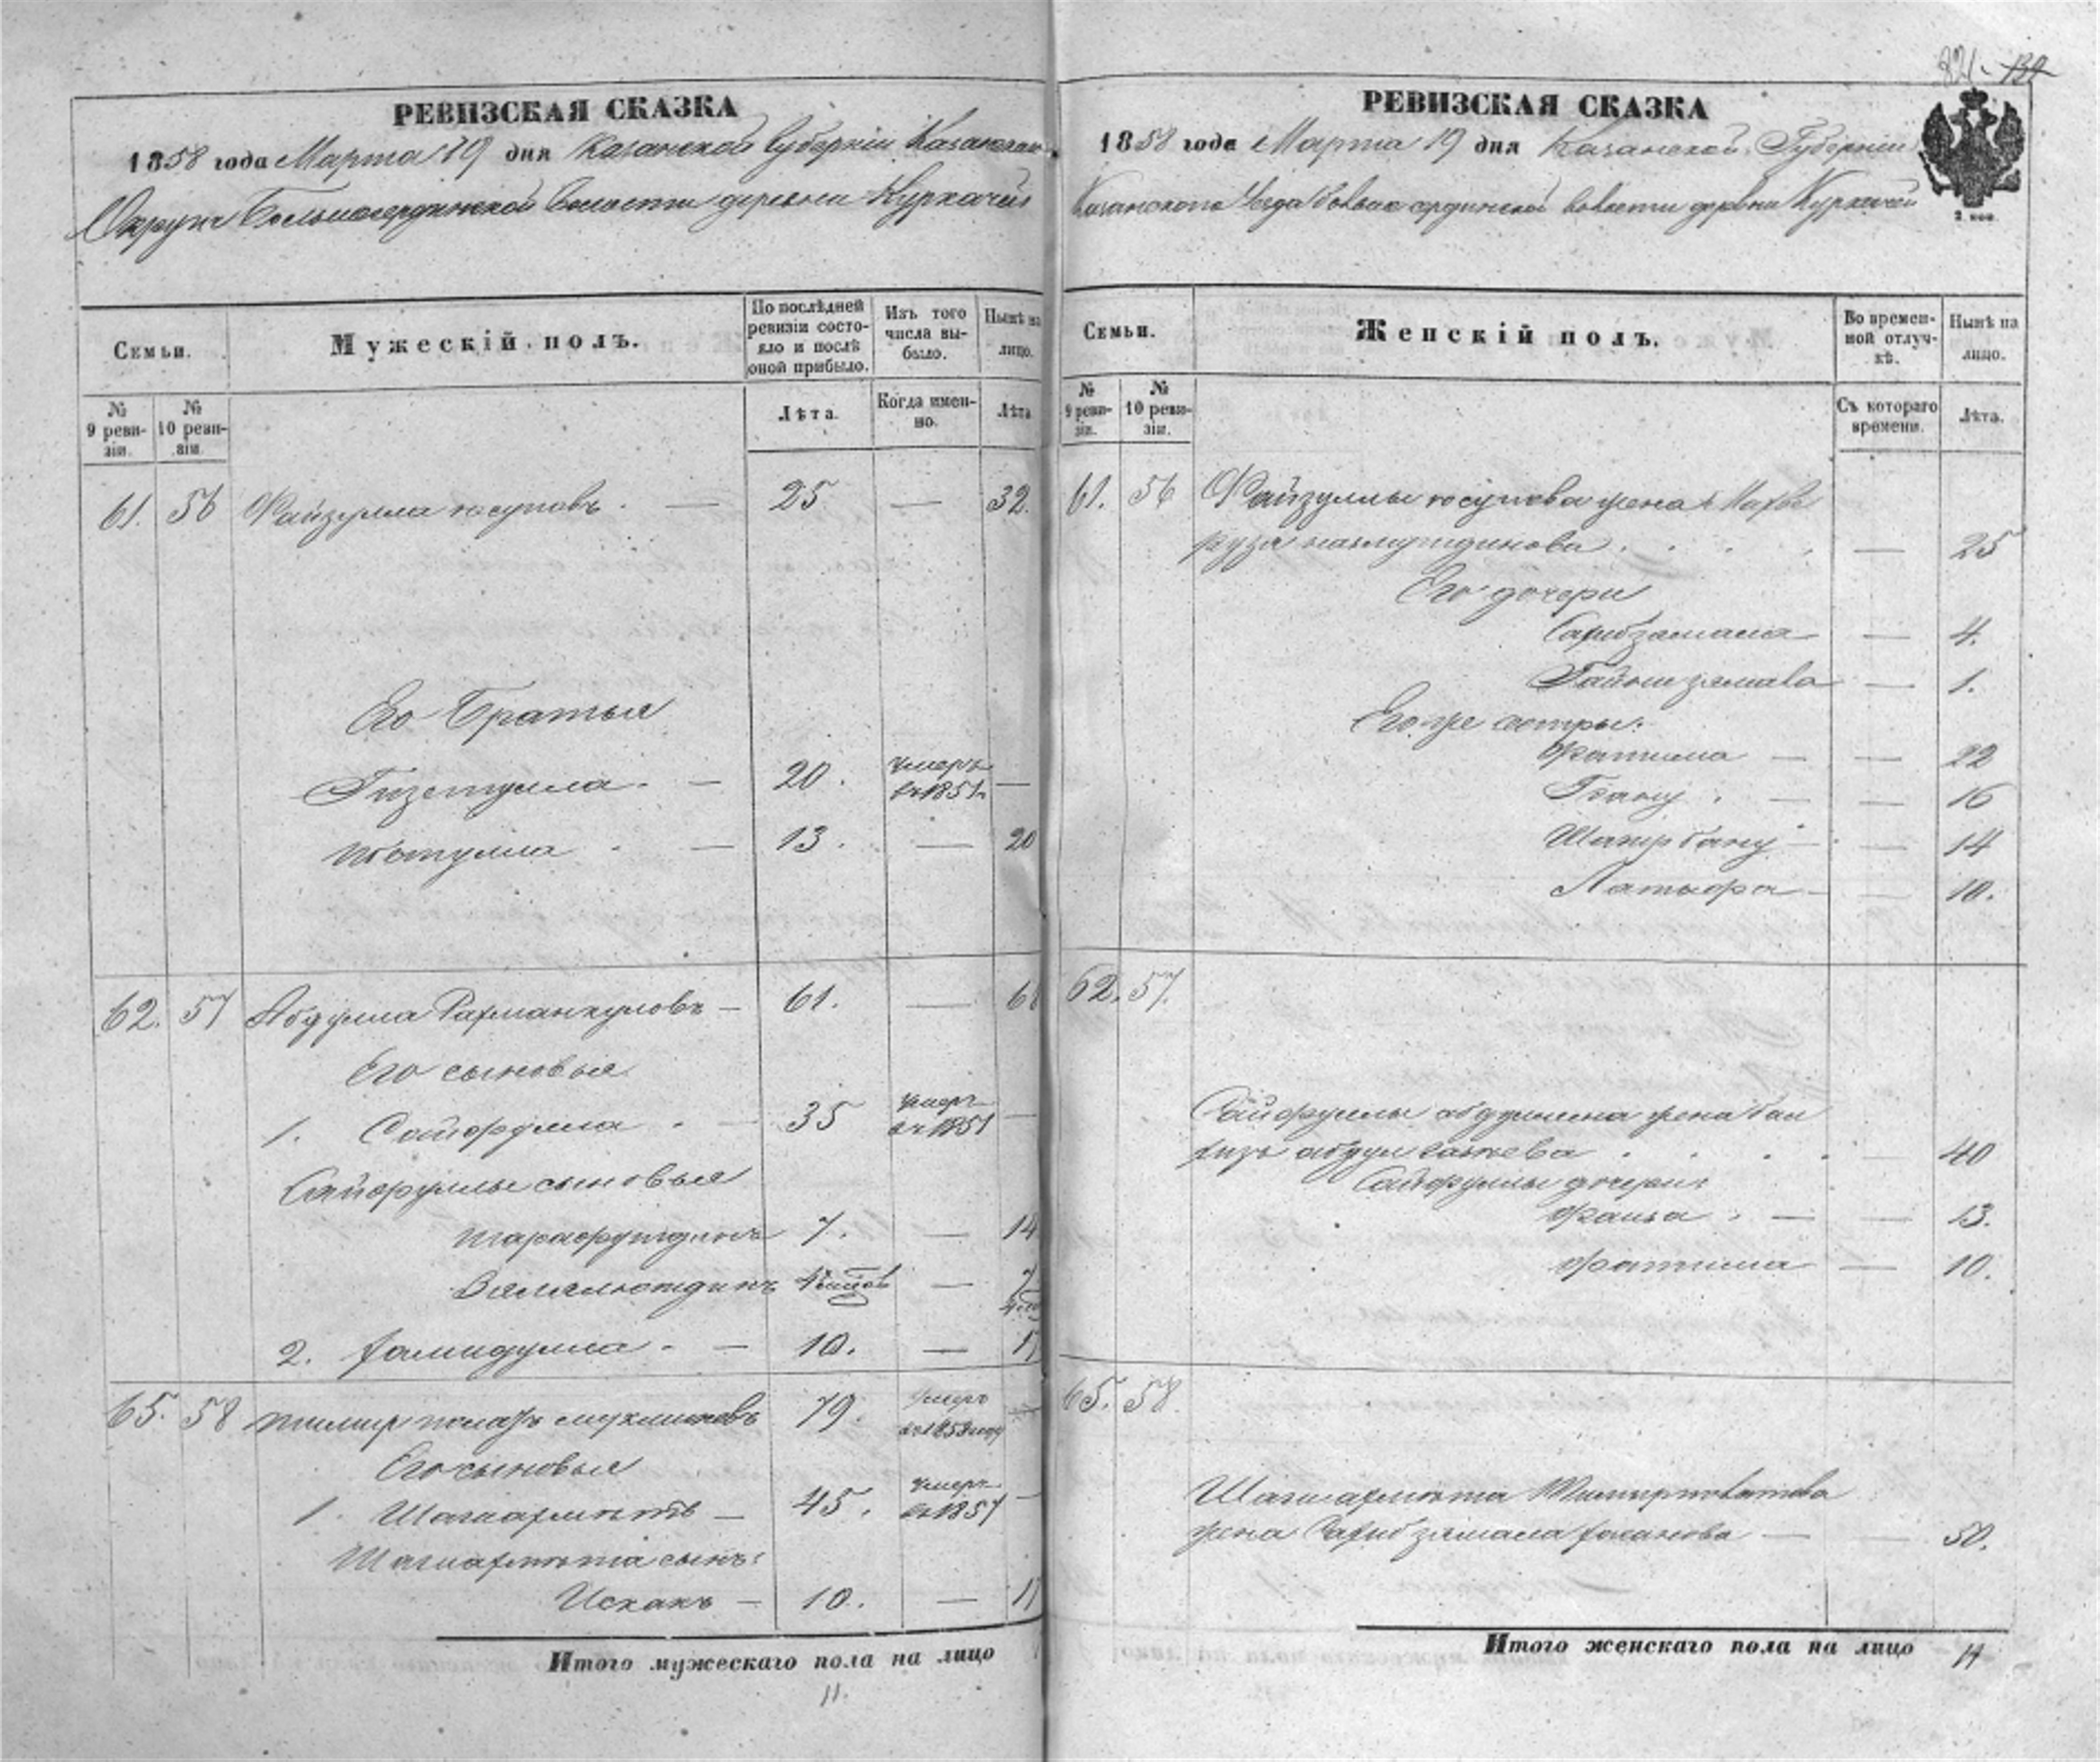 РЕВИЗСКАЯ СКАЗКА
1858 года Марта 19 дня Казанской Губерніи Казанскаго
Округа Большесердинской Волости деревни Куркачей
Семьи.
Мужескій полъ.
По послѣдней ревизіи состояло и послѣ оной прибыло.
Изъ того числа выбыло.
Нынѣ на лицо.
№ 9 ревизіи.
№ 10 ревизіи.
Лѣта.
Когда именно.
Лѣта
61. 56 Файзулла юсуповъ. — 25 — 32.
Его Братья
Гизетулла. — 20. умеръ въ 1851 —
13. — 20
62. 57 Абдулла Рахманкуловъ — 61. — 68
Его сыновья
1. Сайфулла. — 35 умеръ въ 1851 —
Сайфуллы сыновья
шарафутдинъ 7. — 14
Вялялютдинъ 4 —
2. хамидулла. — 10. — 17
65. 58 79. умеръ —
Его сыновья
1. Шагиахметъ — 45. умеръ въ 1857 —
Шагиахмета сынъ:
Исхакъ — 10. — 17
Итого мужескаго пола на лицо
11.
321.
РЕВИЗСКАЯ СКАЗКА
1858 года Марта 19 дня Казанской Губерніи
Казанского Уезда Больше сердинской волости деревни Куркачей
2. коп.
Семьи.
Женскій полъ.
Во временной отлучкѣ.
Нынѣ на лицо.
№ 9 ревизіи.
№ 10 ревизіи.
Съ котораго времени.
Лѣта.
61. 56 Файзуллы юсупова жена Махъ
руза — 25
Его дочери
— 4.
— 1.
Его же сестры:
Фатима — — 22
Гбану. — — 16
Шагирбану — — 14
Латыфа — — 10.
62. 57.
Сайфуллы абдуллина жена Бан
— 40
Сайфуллы дочери:
Фаиза. — — 13.
Фатима — 10.
65. 58.
Шагиахмета
жена Гарибзямала хасанова — — 50.
Итого женскаго пола на лицо 11